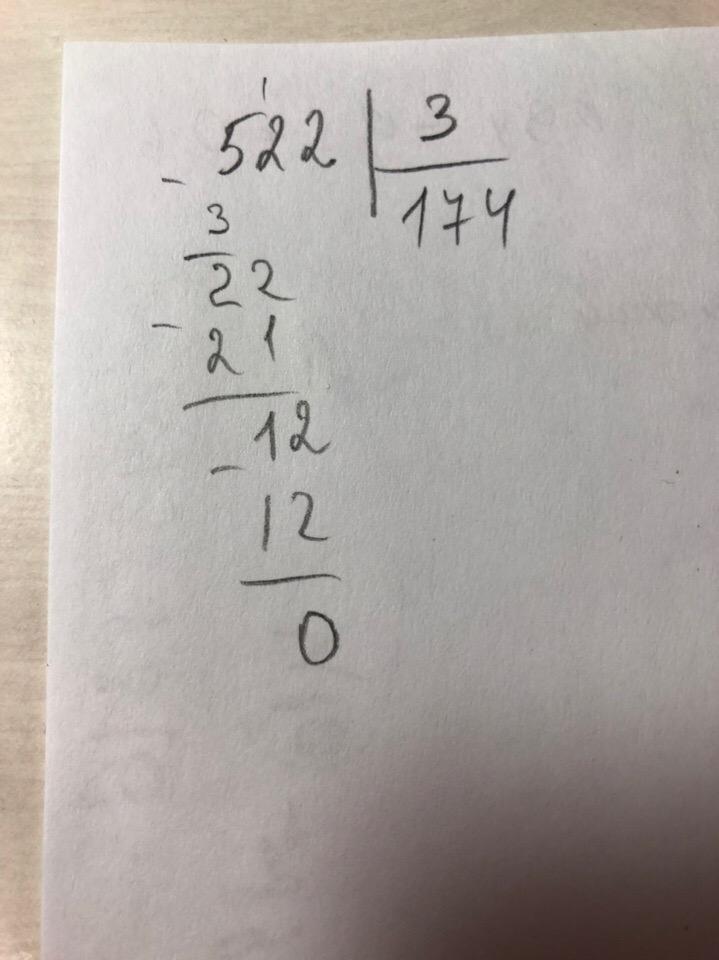 522 3
174
3
22
21
12
12
0